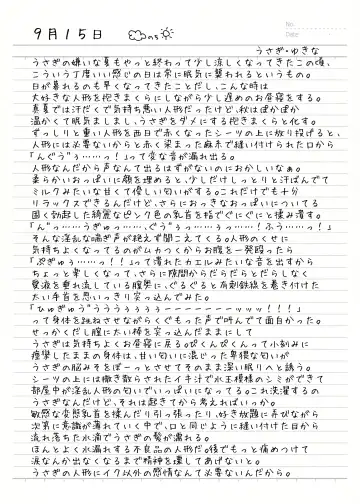 No.
Date
9月15日
うさぎ・ゆきな
うさぎの嫌いな夏もやっと終わって少し涼しくなってきたこの頃、
こういう丁度いい感じの日は常に眠気に襲われるというもの。
日が暮れるのも早くなってきたことだし、こんな時は
大好きな人形を抱きまくらにしながら少し遅めのお昼寝をする。
真夏では汗だくで気持ち悪い人形だったけど、秋はぽかぽか
温かくて眠気ましまし、うさぎをダメにする抱きまくらと化す。
ずっしりと重い人形を西日で赤くなったシーツの上に放り投げると、
人形には必要ないからと赤く染まった麻糸で縫い付けられた口から
「んぐぅ゙ぅ……っ！」って変な音が漏れ出る。
人形なんだから声なんて出るはずがないのにおかしいなぁ。
柔らかいおっぱいに顔を埋めると、少しだけしっとりと汗ばんでて
ミルクみたいな甘くて優しい匂いがする。これだけでも十分
リラックスできるんだけど、さらにおっきなおっぱいについてる
固く勃起した綺麗なピンク色の乳首を指でぐにぐにと揉み潰す。
そんな淫乱な喘ぎ声が絶えず聞こえてくる。人形のくせに
気持ちよくなってるのがムカつくからお腹を一発殴ったら
って潰れたカエルみたいな音を出すから
ちょっと楽しくなって、さらに隙間からだらだらとだらしなく
愛液を垂れ流している膣奥に、ぐるぐると有刺鉄線を巻き付けた
太い手首を思いっきり突っ込んでみた。
って身体を跳ねさせながらくぐもった声で呼んでて面白かった。
せっかくだし膣に太い棒を突っ込んだままにして
うさぎは気持ちよくお昼寝に戻る。ぴくんぴくんって小刻みに
痙攣したままの身体は、甘い匂いに混じった卑猥な匂いが
うさぎの脳みそをぼーっとさせてそのまま深い眠りへと誘う。
シーツの上には撒き散らされたイキ汁で水玉模様のシミができて
部屋中が淫乱人形の匂いでいっぱいになってる。これ洗濯するの
うさぎなんだけど、それは起きてから考えればいっか。
敏感な変態乳首を揉んだり引っ張ったり、好き放題に弄びながら
次第に意識が薄れていく中で、口と同じように縫い付けた目から
流れ落ちた水滴でうさぎの髪が濡れる。
ほんとよく水漏れする不良品の人形だ。後でもっと痛めつけて
涙なんか出なくなるまで精神を壊してあげないと。
うさぎの人形にイク以外の感情なんて必要ないんだから。